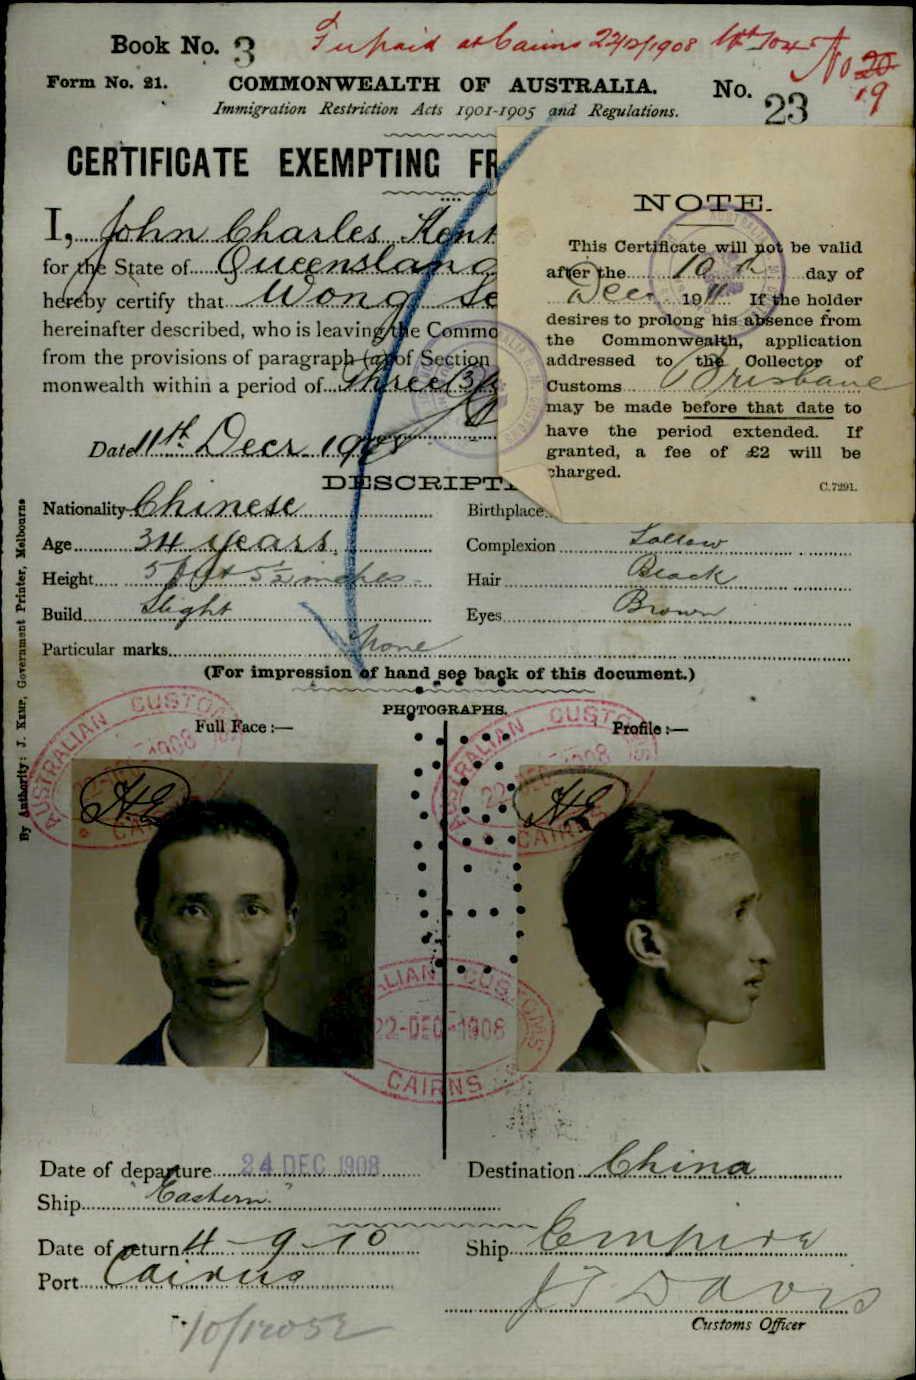 Book No. 3
at Cairns 22/12/1908
No 20
19
Form No. 21.
COMMONWEALTH OF AUSTRALIA.
No. 23
Immigration Restriction Acts 1901-1905 and Regulations.
CERTIFICATE EXEMPTING FR
I, John Charles Kent
for the State of Queensland
hereby certify that Wong
hereinafter described, who is leaving the Commo
from the provisions of paragraph (a) of Section
monwealth within a period of Three
Date 11th Decr 1908
NOTE.
This Certificate will not be valid
after the 10th day of
Decr 1911. If the holder
desires to prolong his absence from
the Commonwealth, application
addressed to the Collector of
Customs Brisbane
may be made before that date to
have the period extended. If
granted, a fee of £2 will be
charged.
C.7291.
DESCRIPTI
Nationality Chinese
Birthplace
Age 34 years
Complexion Sallow
Height 5 feet 5½ inches
Hair Black
Build Slight
Eyes Brown
Particular marks none
(For impression of hand see back of this document.)
PHOTOGRAPHS.
Full Face :—
Profile :—
AUSTRALIAN CUSTOMS
22 DEC 1908
CAIRNS
AUSTRALIAN CUSTOMS
22-DEC-1908
CAIRNS
AUSTRALIAN CUSTOMS
22-DEC-1908
CAIRNS
By Authority: J. Kemp, Government Printer, Melbourne
Date of departure 24 DEC 1908
Destination China
Ship "Eastern"
Date of return 4-9-10
Ship Empire
Port Cairns
J T Davis
Customs Officer
10/12052